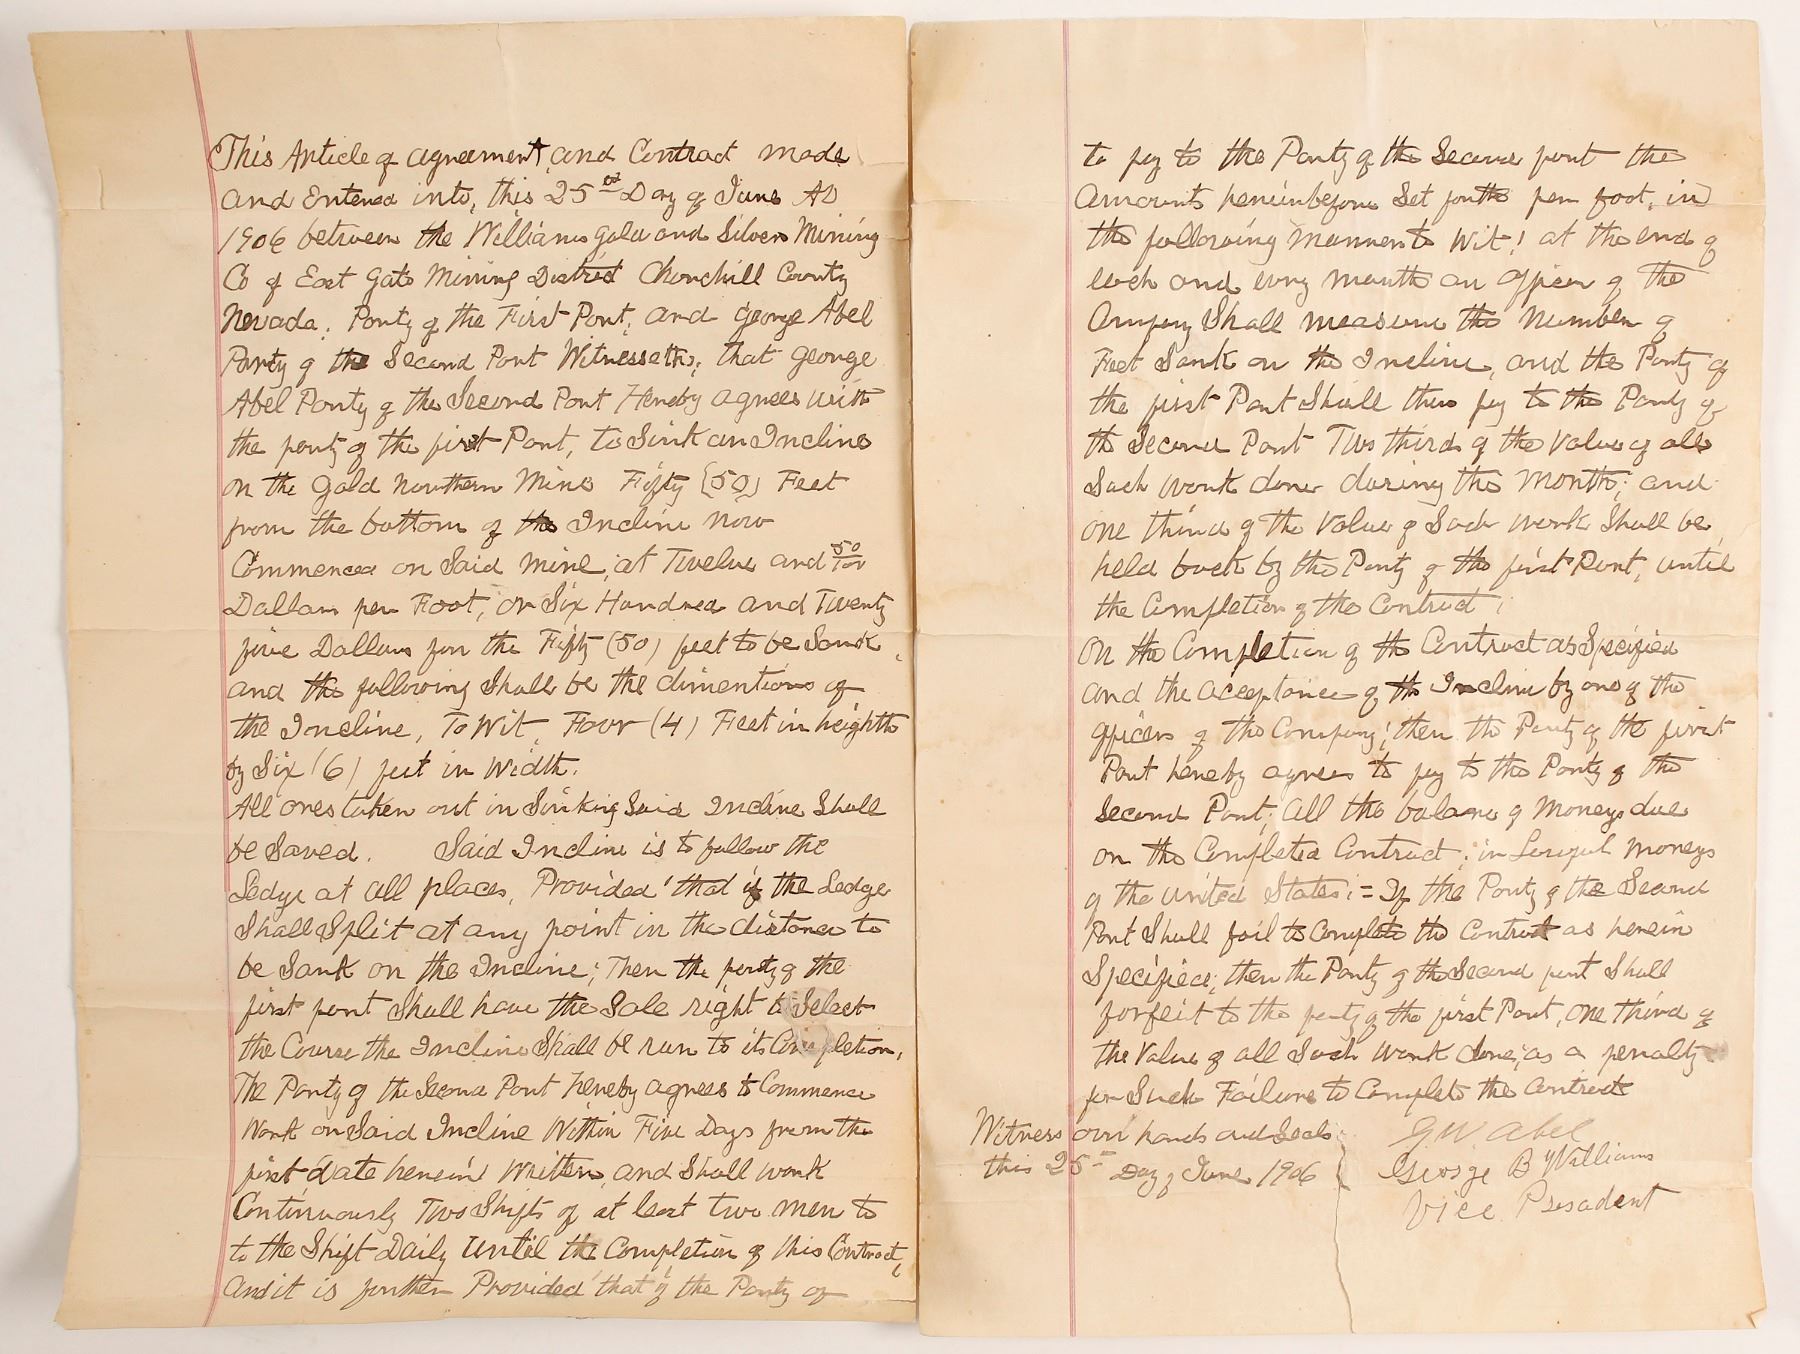 This Article of agreement and Contract made
and Entered into, this 25th Day of June AD
1906 between the Williams Gold and Silver Mining
Co of East Gate Mining District Churchill County
Nevada, Party of the First Part, and George Abel
Party of the Second Part Witnesseth; that George
Abel Party of the Second Part Hereby agrees with
the party of the first Part, to Sink an Incline
on the Gold Northern Mine Fifty (50) Feet
from the bottom of the Incline now
Commenced on Said mine, at Twelve and 50/100
Dollars per Foot, or Six Hundred and Twenty
five Dollars for the Fifty (50) feet to be Sunk,
and the following Shall be the dimentions of
the Incline, To Wit, Four (4) Feet in heighth
by Six (6) feet in width.
All ores taken out in Sinking Said Incline Shall
be Saved. Said Incline is to follow the
Ledge at all places, Provided that if the Ledge
Shall Split at any point in the distance to
be Sunk on the Incline; Then the party of the
first part Shall have the Sole right to Select
the Course the Incline Shall be run to its Completion,
The Party of the Second Part hereby agrees to Commence
Work on Said Incline Within Five Days from the
first date herein Written, and Shall work
Continuously Two Shifts of at least two men to
to the Shift Daily Until the Completion of this Contract,
And it is further Provided that if the Party of
to pay to the Party of the Second part the
Amounts hereinbefore Set forth per foot, in
the following manner to Wit! at the end of
each and every month an officer of the
Company Shall measure the Number of
Feet Sunk on the Incline, and the Party of
the first Part Shall then pay to the Party of
the Second Part Two thirds of the Value of all
Such work done during the Month; and
one third of the Value of Such work Shall be
held back by the Party of the first Part, until
the Completion of the Contract;
On the Completion of the Contract as Specified
and the acceptance of the Incline by one of the
officers of the Company; then the Party of the first
Part hereby agrees to pay to the Party of the
Second Part; all the balance of Moneys due
on the Completed Contract; in Lawful moneys
of the United States:= If the Party of the Second
Part Shall fail to Complete the Contract as herein
Specified; then the Party of the Second part Shall
forfeit to the party of the first Part, one third of
the Value of all Such work done; as a penalty
for Such Failure to Complete the Contract
Witness our hands and Seals
this 25th Day of June 1906
G. W. Abel
George B Williams
Vice Presadent